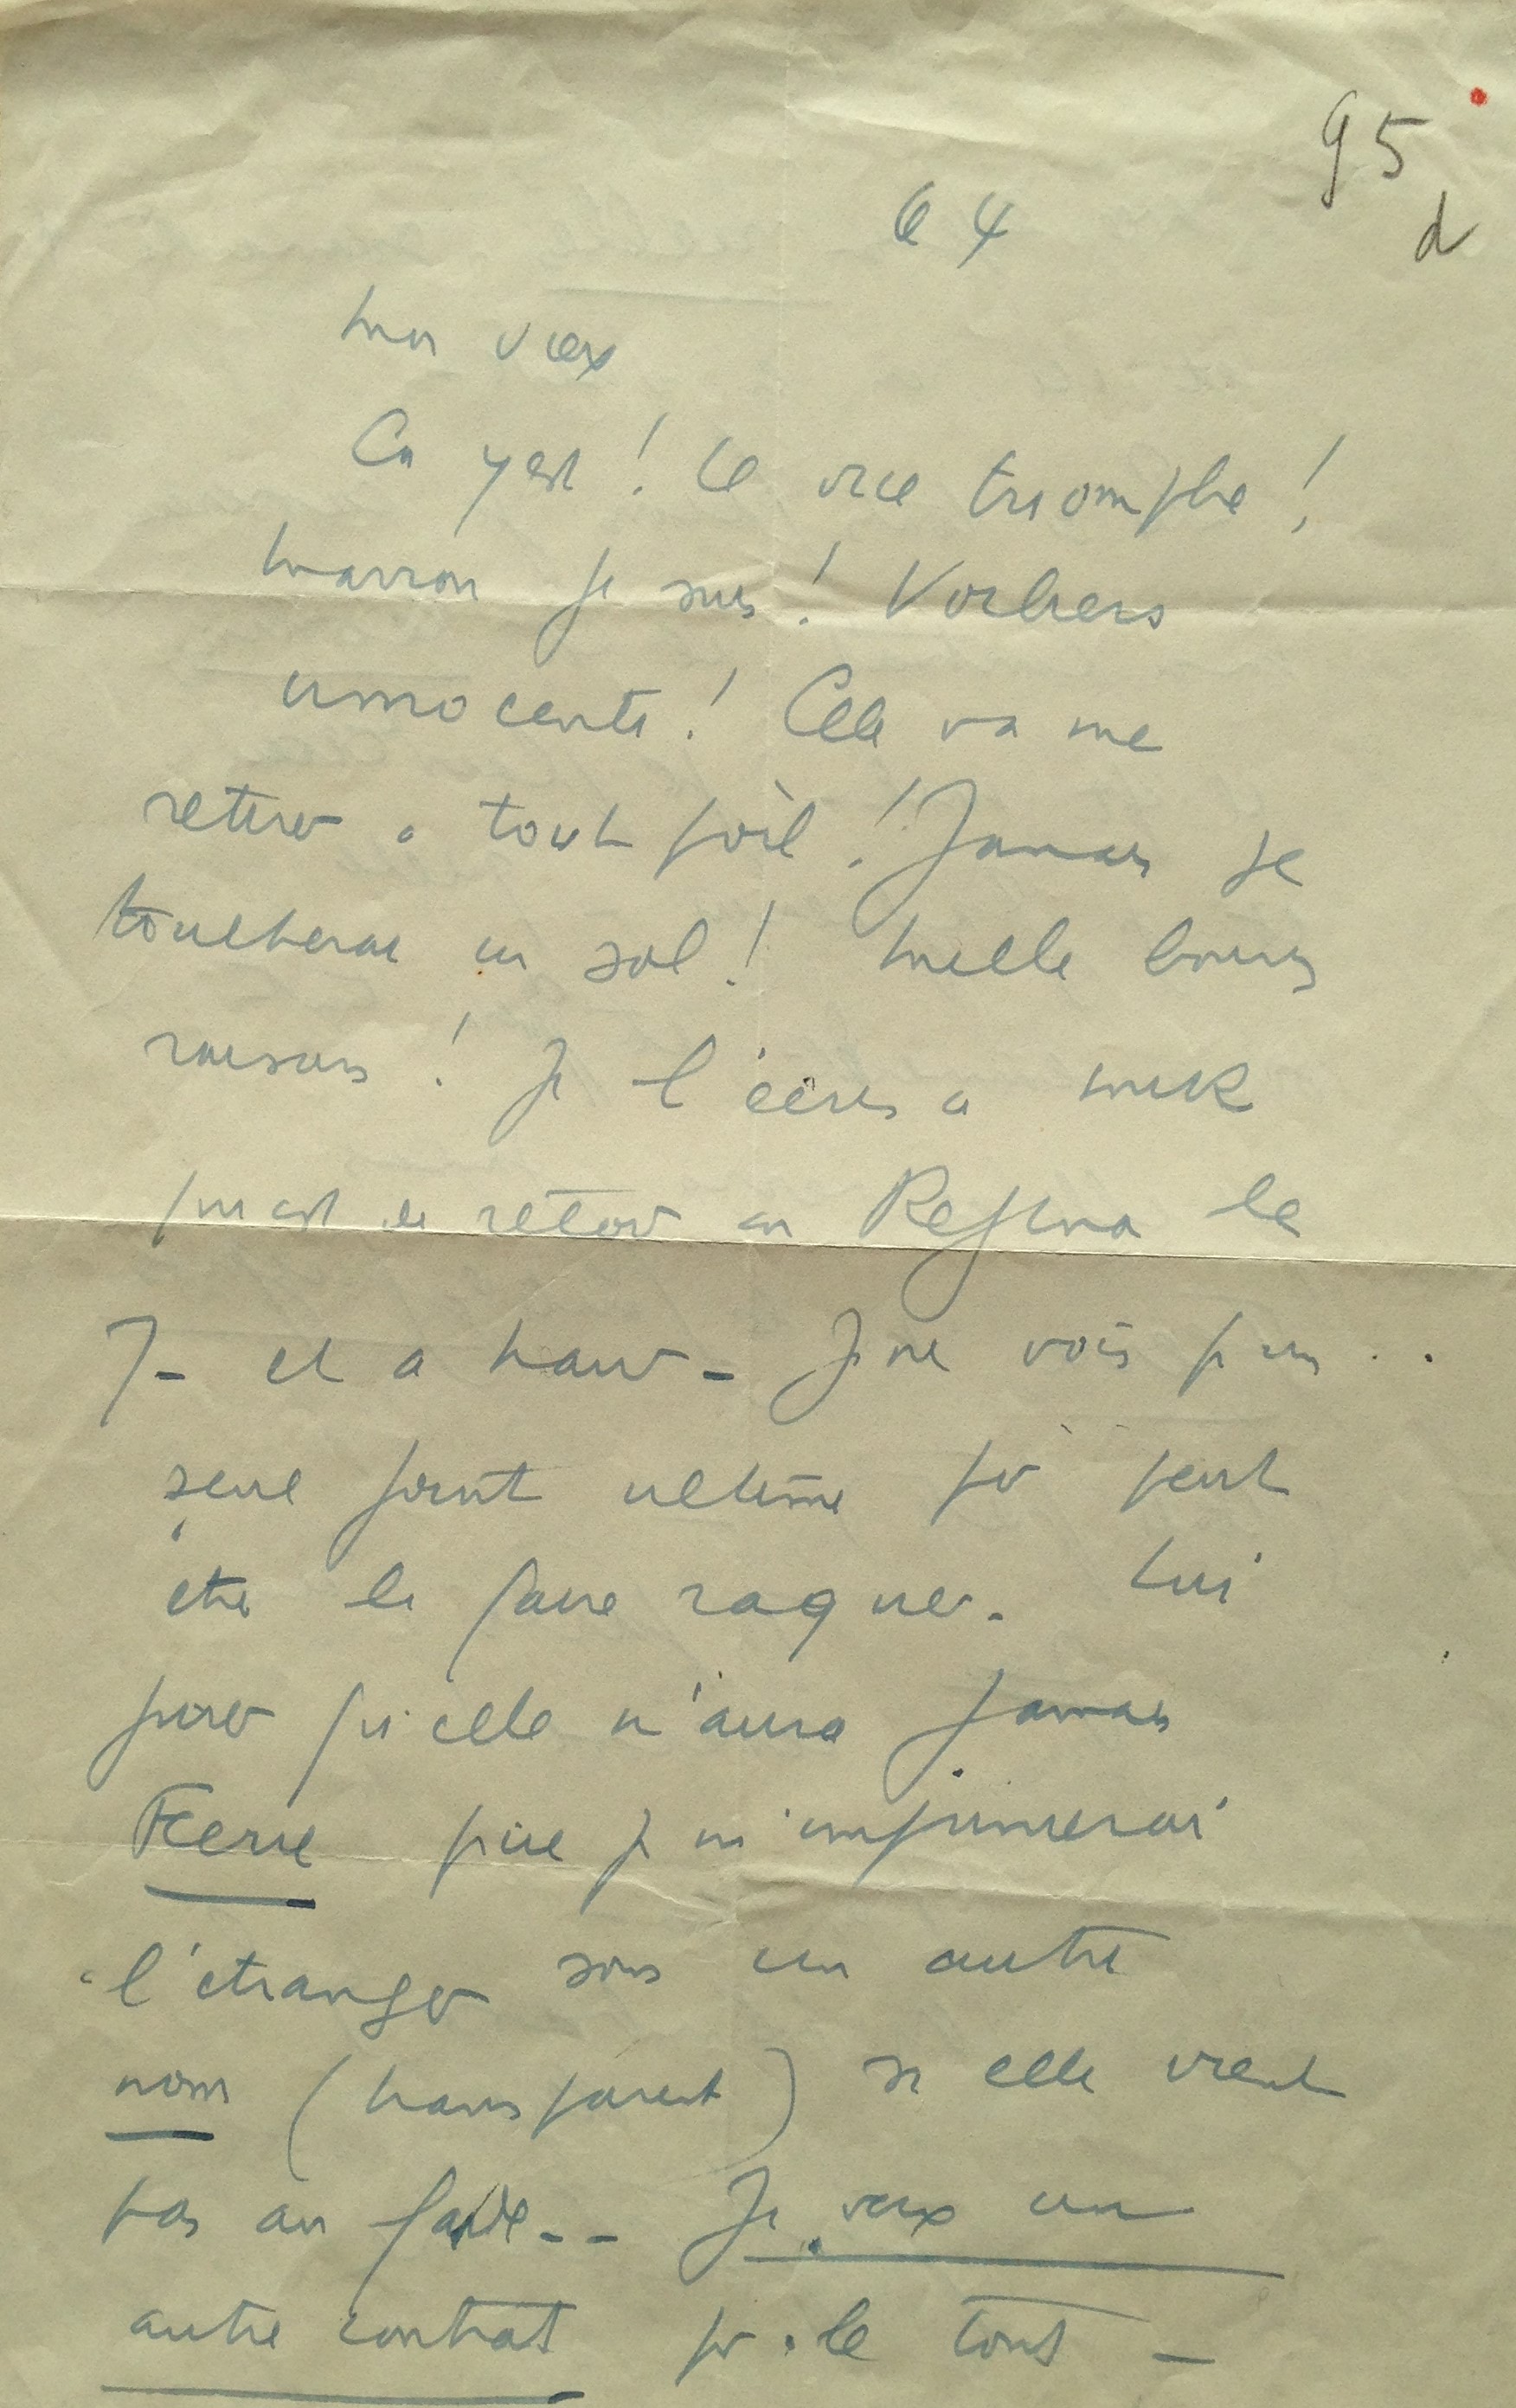 95
d
64
Mon vieux
Ca y est ! Le vice triomphe !
marron je suis ! Voiliers
innocente ! Cela va me
retirer à tout poil ! Jamais je
toucherai un sol ! Mille bonnes
raisons ! Je l'écris à Mik
qui est de retour au Regina le
7 - et à
Je ne vois qu'un . .
seul point ultime pr peut
être le faire raquer. Lui
jurer qu'elle n'aura jamais
Féerie que je m'imprimerai
à l'étranger sous un autre
nom (transparent) si elle vient
pas au fade - - Je veux un
autre contrat pr le tout -